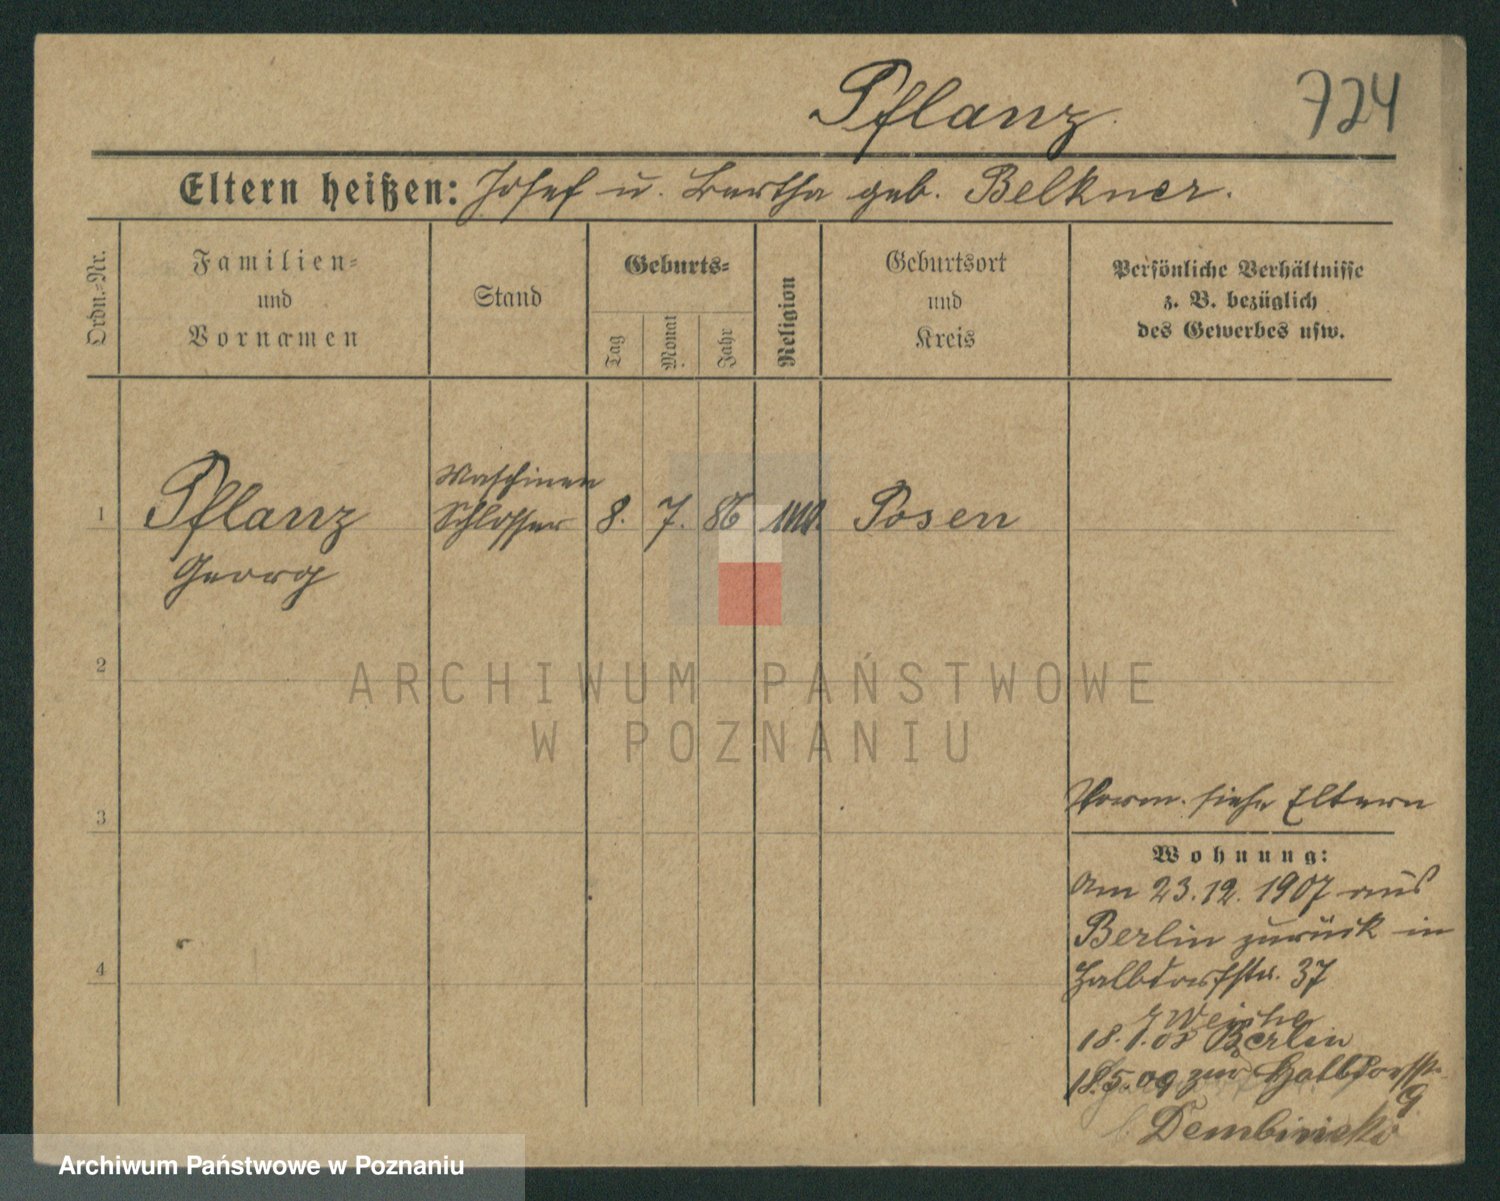 Pflanz. 724
Eltern heißen: Josef u. Bertha geb. Belkner.
Ordn.-Nr.
Familien-
und
Vornamen
Stand
Geburts-
Tag
Monat
Jahr
Religion
Geburtsort
und
Kreis
Persönliche Verhältnisse
z. B. bezüglich
des Gewerbes usw.
Maschinen
1 Pflanz Schlosser 8. 7. 86 Posen
Georg
2
ARCHIWUM PAŃSTWOWE
W POZNANIU
Verm. siehe Eltern
3
Wohnung:
Am 23.12.1907 aus
Berlin zurück in
Halbdorfstr. 37
4
18.1.08 Berlin
18.5.09 zur Halbdorfstr.
9
Archiwum Państwowe w Poznaniu